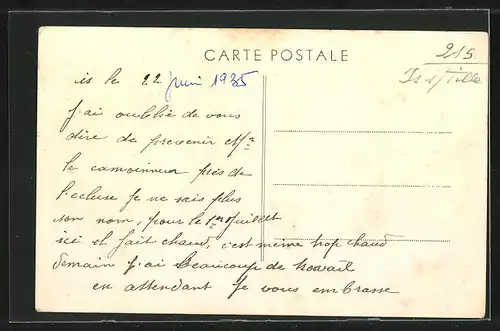 CARTE POSTALE
215
Is s/Tille
is le 22 Juin 1935
j'ai oublié de vous
dire de prevenir Mr
le camionneur près de
l'ecluse je ne sais plus
son nom, pour le 1er Juillet
ici il fait chaud, c'est même trop chaud
demain j'ai beaucoup de travail
en attendant je vous embrasse